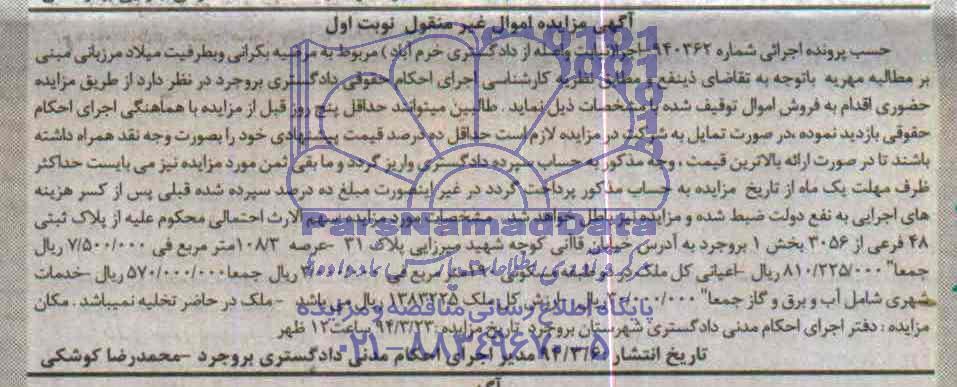 آگهی مزایده اموال غیر منقول نوبت اول
حسب پرونده اجرائی شماره ۹۴۰۳۶۲-اجرا( واصله از دادگستری خرم آباد ) مربوط به مرضیه بکرانی وبطرفیت میلاد مرزبانی مبنی
بر مطالبه مهریه باتوجه به تقاضای ذینفع و مطابق نظریه کارشناسی اجرای احکام حقوقی دادگستری بروجرد در نظر دارد از طریق مزایده
حضوری اقدام به فروش اموال توقیف شده با مشخصات ذیل نماید . طالبین میتوانند حداقل پنج روز قبل از مزایده با هماهنگی اجرای احکام
حقوقی بازدید نموده ،در صورت تمایل به شرکت در مزایده لازم است حداقل ده درصد قیمت پیشنهادی خود را بصورت وجه نقد همراه داشته
باشند تا در صورت ارائه بالاترین قیمت ، وجه مذکور به حساب سپرده دادگستری واریز گردد و ما بقی ثمن مورد مزایده نیز می بایست حداکثر
ظرف مهلت یک ماه از تاریخ مزایده به حساب مذکور پرداخت گردد در غیر اینصورت مبلغ ده درصد سپرده شده قبلی پس از کسر هزینه
های اجرایی به نفع دولت ضبط شده و مزایده نیز باطل خواهد شد . مشخصات مورد مزایده سهم الارث احتمالی محکوم علیه از پلاک ثبتی
۴۸ فرعی از ۳۰۵۶ بخش ۱ بروجرد به آدرس خیابان قاآنی کوچه شهید میرزایی پلاک ۳۱ -عرصه ۱۰۸/۳متر مربع فی ۷/۵۰۰/۰۰۰ ریال
جمعا" ۸۱۰/۲۲۵/۰۰۰ ریال -اعیانی کل ملک در دو طبقه مسکونی ۱۹۰متر مربع فی ریال جمعا۵۷۰/۰۰۰/۰۰۰ ریال -خدمات
شهری شامل آب و برق و گاز جمعا" ریال -ارزش کل ملک ریال می باشد - ملک در حاضر تخلیه نمیباشد . مکان
مزایده : دفتر اجرای احکام مدنی دادگستری شهرستان بروجرد تاریخ مزایده :۹۴/۳/۲۳ ساعت۱۲ ظهر
تاریخ انتشار ۹۴/۳/۶ مدیر اجرای احکام مدنی دادگستری بروجرد -محمدرضا کوشکی
ParsNamadData
پایگاه اطلاع رسانی مناقصه و مزایده
۰۲۱-۸۸۳۴۹۶۷۰-۵